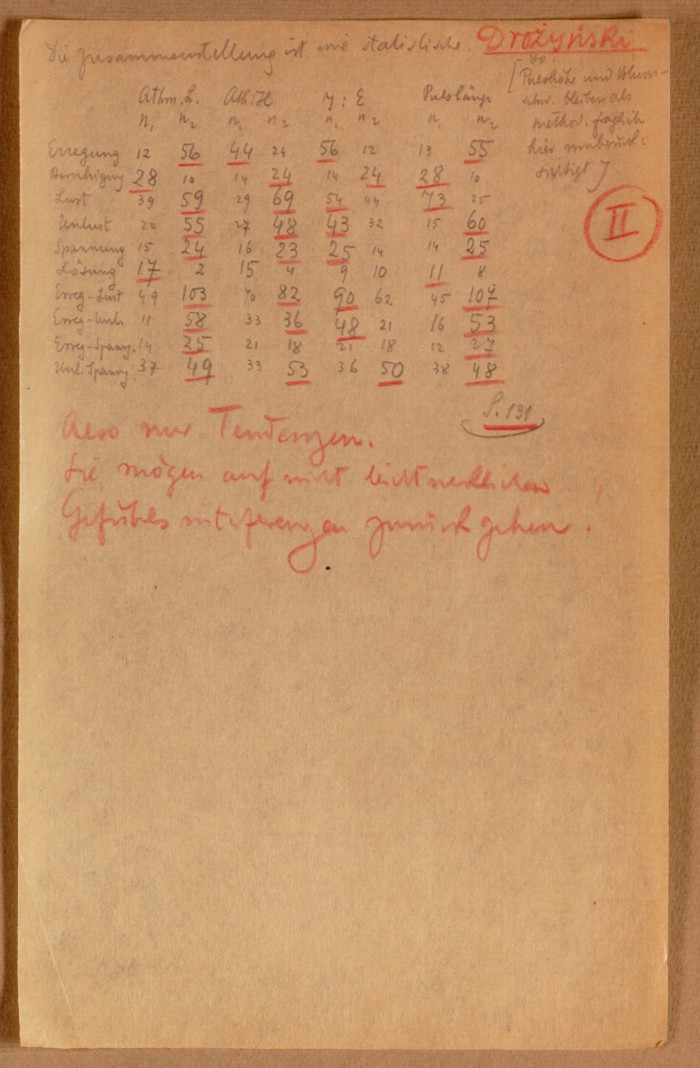 Die Zusammenstellung ist eine statistische. Drożyński
[Pulshöhe und Volum-
bleiben als
method. fraglich
hier unberück-
sichtigt]
II
Athm. L. Ath. H J : E Pulslänge
n₁ n₂ n₁ n₂ n₁ n₂ n₁ n₂
Erregung 12 56 44 24 56 12 13 55
Beruhigung 28 10 14 24 14 24 28 10
Lust 39 59 29 69 54 44 73 25
Unlust 20 55 27 48 43 32 15 60
Spannung 15 24 16 23 25 14 14 25
Lösung 17 2 15 4 9 10 11 8
Erreg-Lust 49 103 70 82 90 62 45 107
Erreg-Unl. 11 58 33 36 48 21 16 53
Erreg-Spann. 14 25 21 18 21 18 12 27
Unl.-Spanng 37 49 33 53 36 50 38 48
S. 131
Also nur Tendenzen.
Sie mögen auf nicht leicht merklichen
Gefühls zurück gehen.